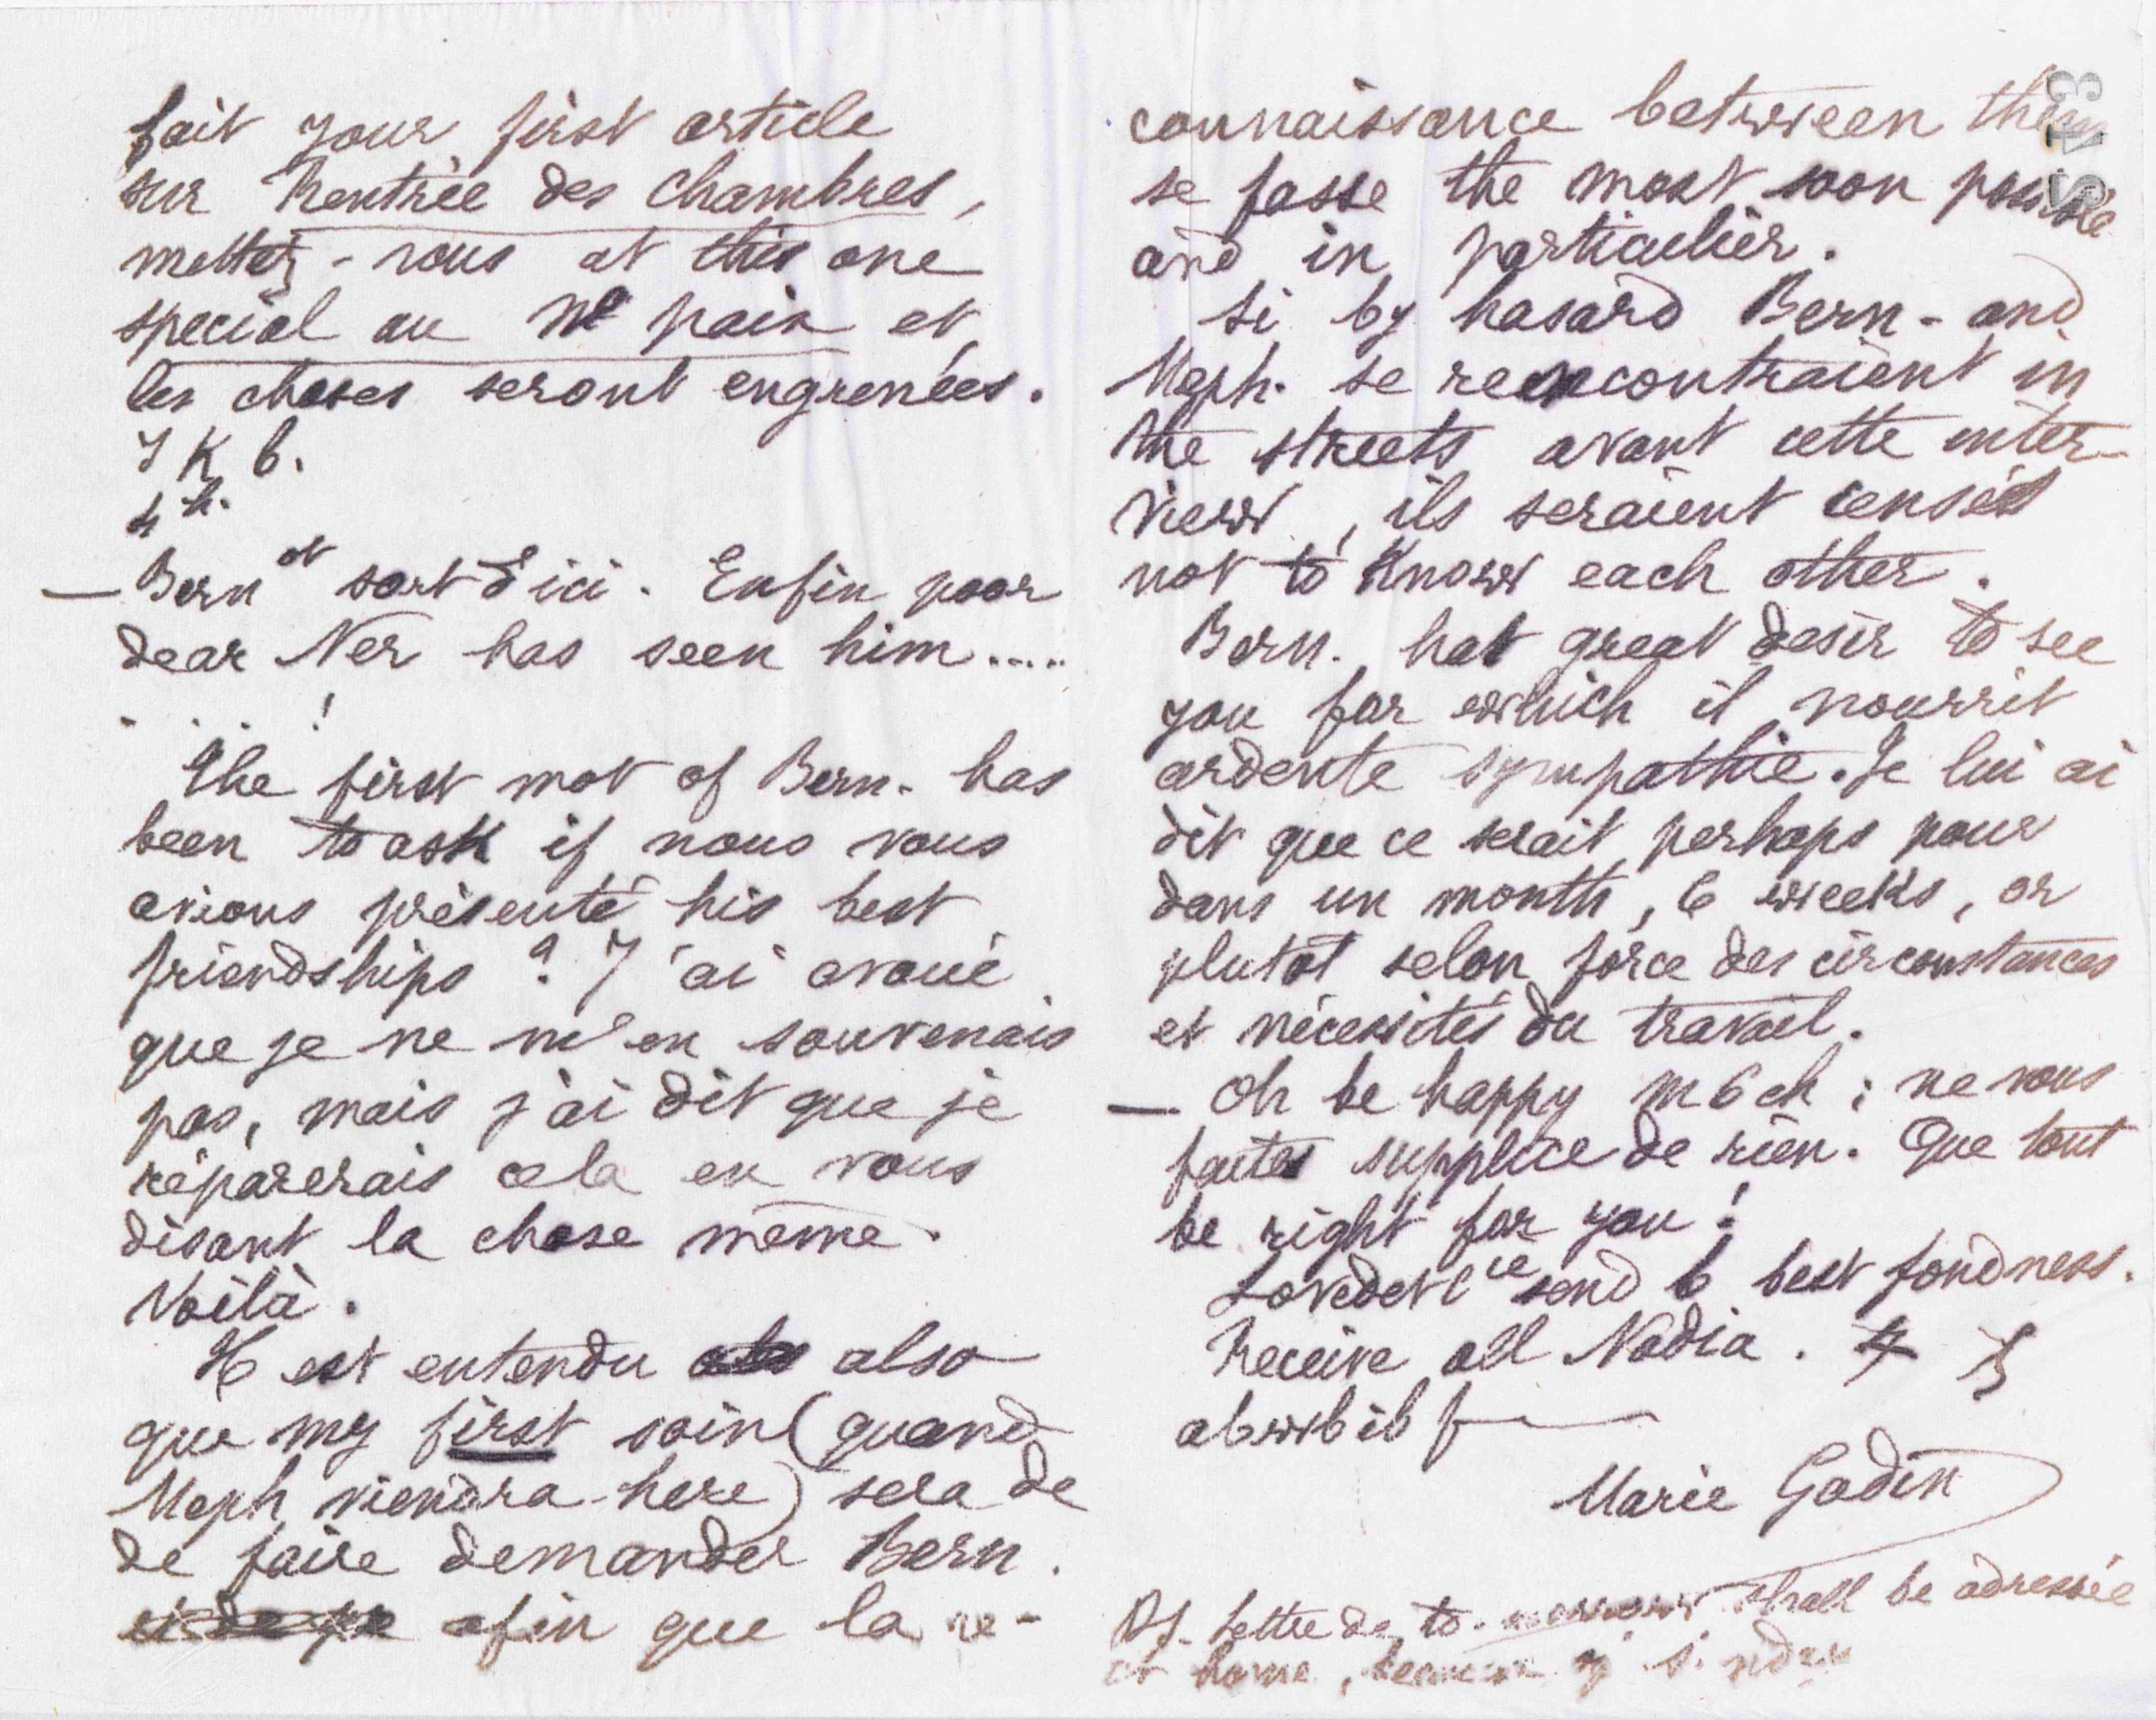 fait your first article
sur Rentrée des Chambres,
mettez-vous at this one
special au No pain et
les choses seront engrenées.
J K 6.
4 h.
— Bern et sort d'ici. Enfin poor
dear Ner has seen him.....
. . . !
The first mot of Bern. has
been to ask if nous vous
avions présenté his best
friendships? J'ai avoué
que je ne m'en souvenais
pas, mais j'ai dit que je
réparerais cela en vous
disant la chose même.
Voilà.
Il est entendu also
que my first soin (quand
Meph viendra here) sera de
de faire demander Bern.
afin que la re-
connaissance between them
se fasse the most soon possible
and in particulier.
Si by hasard Bern- and
Meph. se rencontraient in
the streets avant cette inter-
view, ils seraient censés
not to know each other.
Bern. hat great desir to see
you for which il nourrit
ardente sympathie. Je lui ai
dit que ce serait perhaps pour
dans un month, 6 weeks, or
plutôt selon force des circonstances
et nécessités du travail.
— Oh be happy m 6 ch; ne vous
faites supplice de rien. Que tout
be right for you!
send 6 best fondness.
Receive all Nadia.
Marie Godin
PS. Lettre de to-morrow shall be adressée
at home, because
543